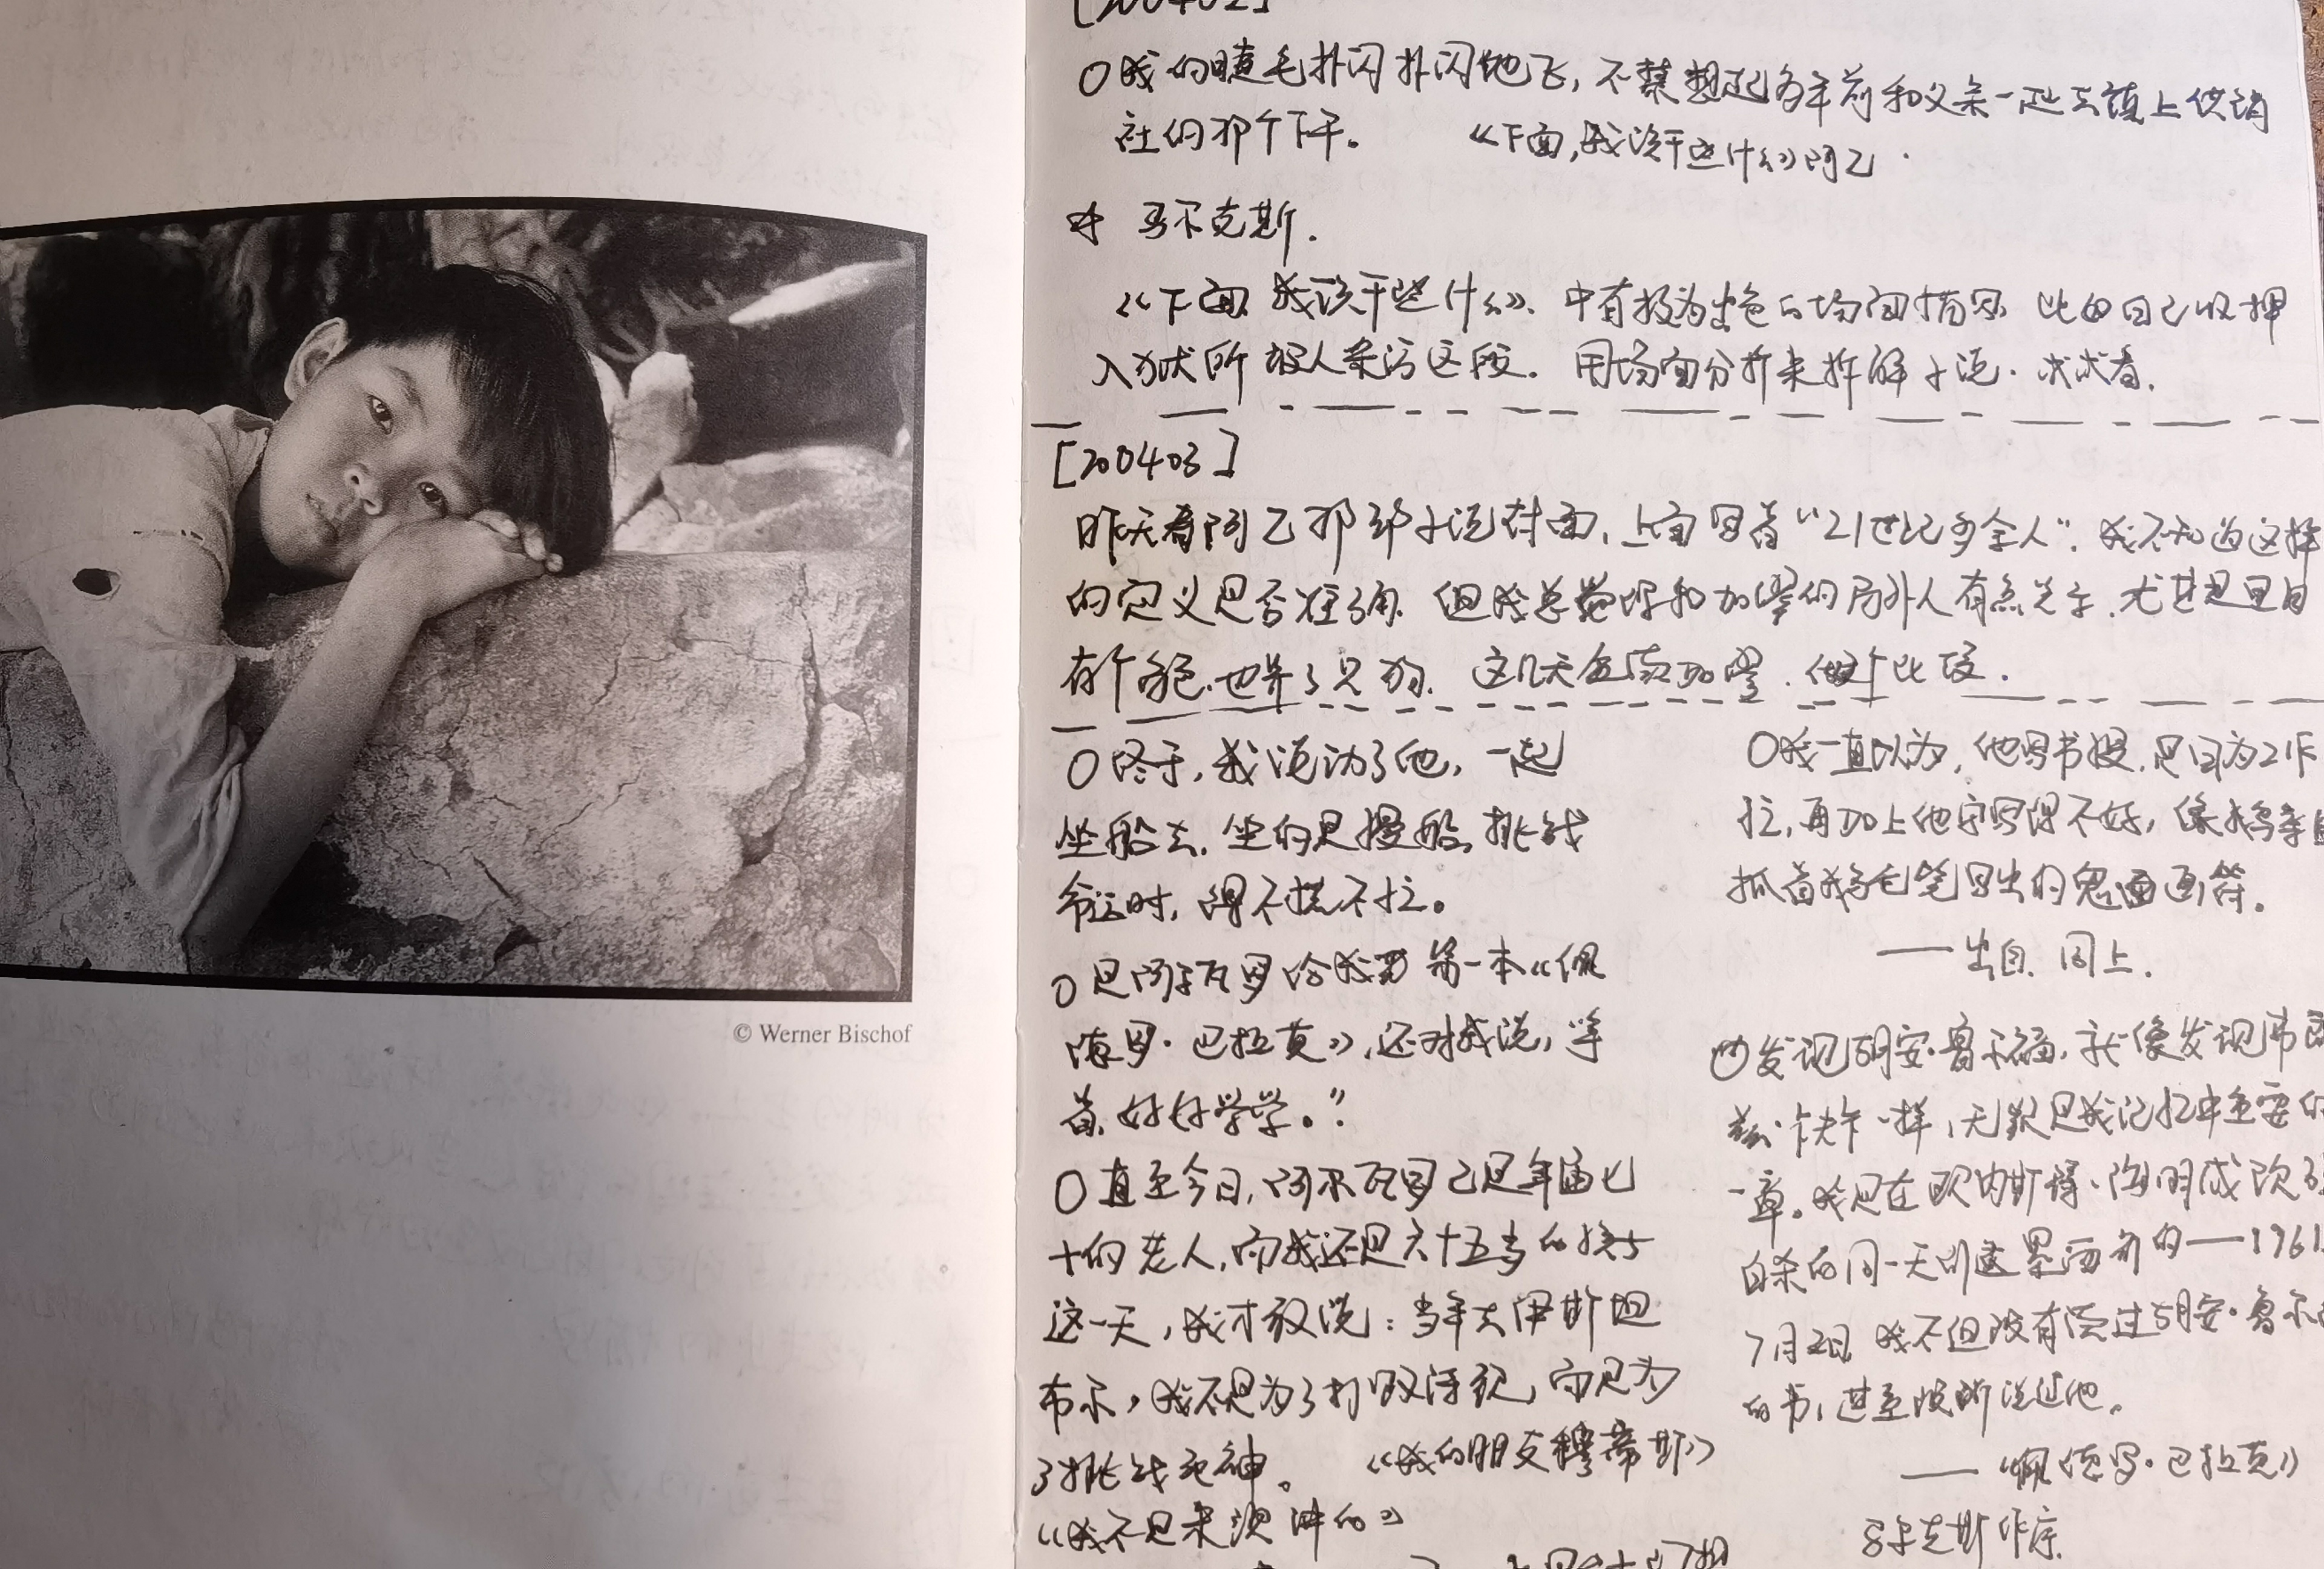 © Werner Bischof
[200402]
○我的睫毛扑闪扑闪地飞，不禁想起多年前和父亲一起去镇上供销
社的那个下午。 《下面，我该干些什么》阿乙
马尔克斯．
《下面 我该干些什么》．中有极为出色的场面描写 比如自己收押
入狱所 被人采访这段． 用场面分析来拆解小说．试试看．
[200403]
昨天看阿乙那部小说封面，上面写着“21世纪多余人”．我不知道这样
的定义是否准确 但我总觉得和加缪的局外人有点关系，尤其是里面
有个 也养了只狗． 这几天 加缪．做个比较．
○终于，我说动了他，一起
坐船去．坐的是慢船，挑战
命运时，得不慌不忙。
○是阿尔瓦罗给我 第一本《佩
德罗·巴拉莫》，还对我说，拿
着，好好学学。”
○直至今日，阿尔瓦罗已是年届七
十的老人，而我还是六十五岁的孩子
这一天，我才敢说：当年去伊斯坦
布尔，我不是为了打 而是为
了挑战死神。 《我的朋友穆蒂斯》
《我不是来演讲的》
○我一直以为，他写书慢，是因为工作
忙，再加上他字写得不好，像
抓着鹅毛笔写出的鬼画 符。
——出自 同上．
发现胡安·鲁尔福，就像发现弗
兹·卡夫卡一样，无疑是我记忆中重要的
一章。我是在欧内斯特·海明威
自杀的同一天到达墨西哥的——1961
7月2日 我不但没有读过胡安·鲁尔
的书，甚至没听说过他。
——《佩德罗·巴拉莫》
马尔克斯作序